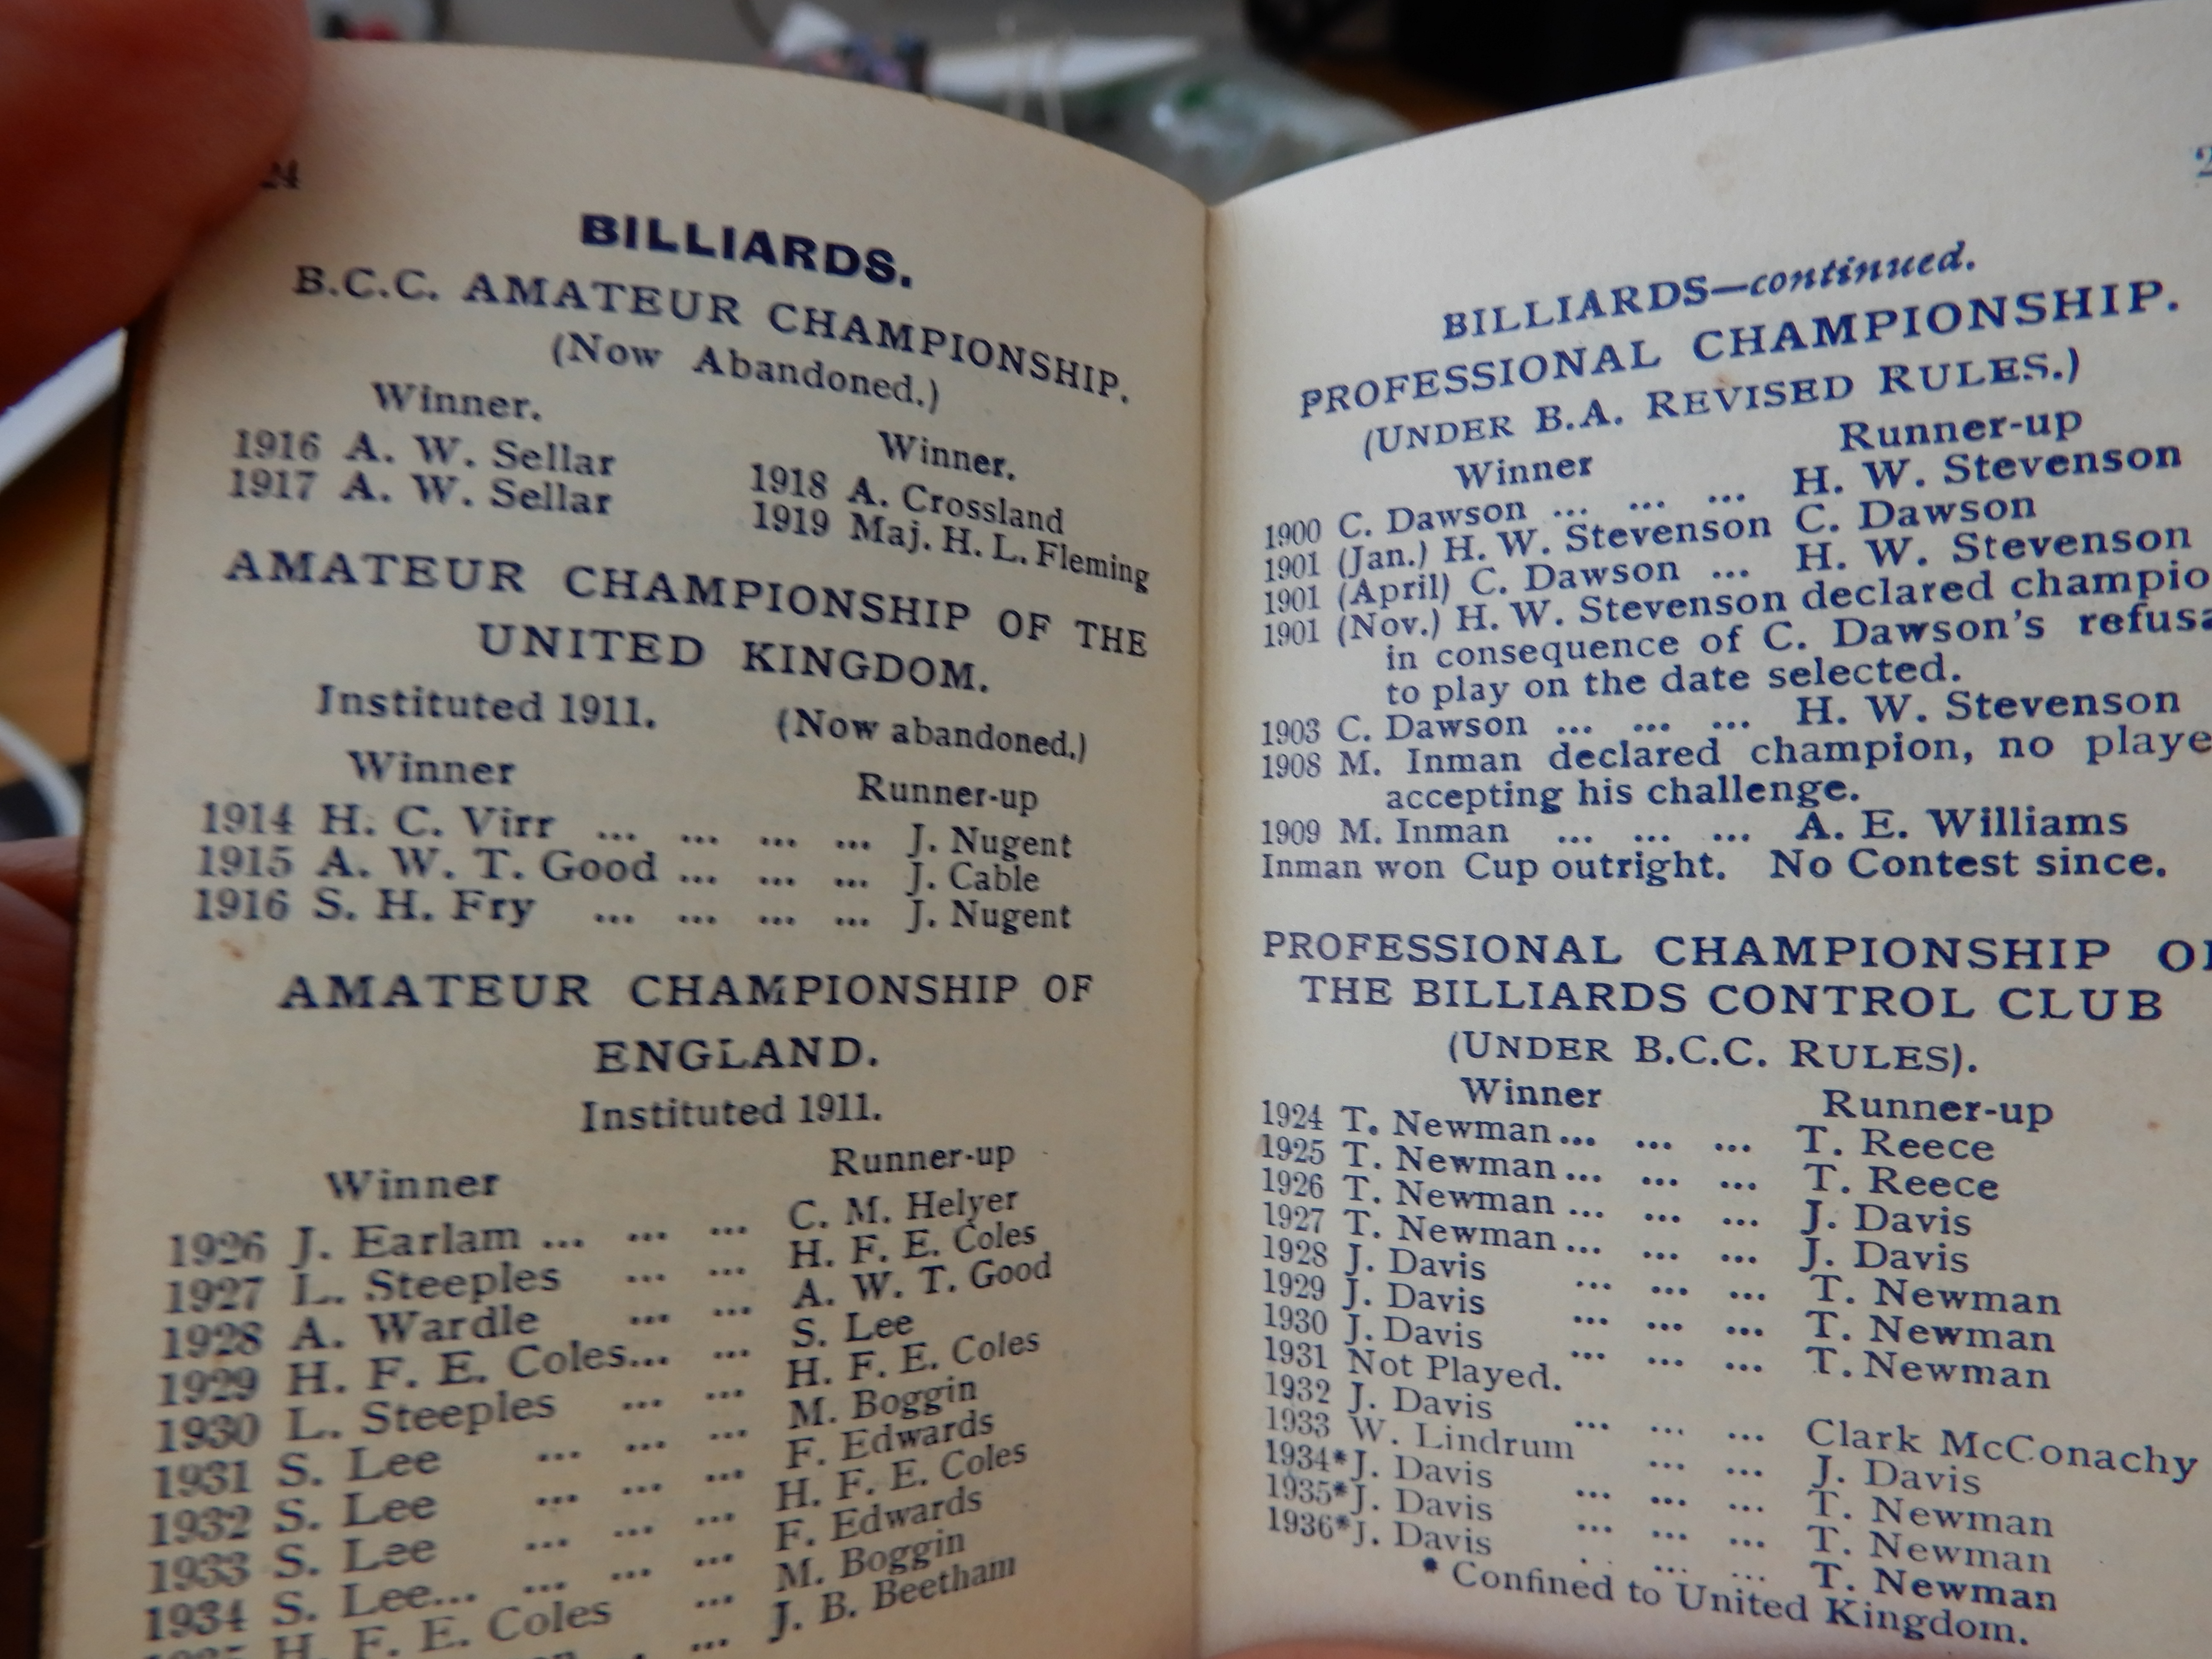 24
BILLIARDS.
B.C.C. AMATEUR CHAMPIONSHIP.
(Now Abandoned.)
Winner. Winner.
1916 A. W. Sellar 1918 A. Crossland
1917 A. W. Sellar 1919 Maj. H. L. Fleming
AMATEUR CHAMPIONSHIP OF THE
UNITED KINGDOM.
Instituted 1911. (Now abandoned.)
Winner Runner-up
1914 H. C. Virr ... ... ... ... J. Nugent
1915 A. W. T. Good ... ... ... J. Cable
1916 S. H. Fry ... ... ... ... J. Nugent
AMATEUR CHAMPIONSHIP OF
ENGLAND.
Instituted 1911.
Winner Runner-up
1926 J. Earlam ... ... ... C. M. Helyer
1927 L. Steeples ... ... H. F. E. Coles
1928 A. Wardle ... ... A. W. T. Good
1929 H. F. E. Coles... ... S. Lee
1930 L. Steeples ... ... H. F. E. Coles
1931 S. Lee ... ... ... M. Boggin
1932 S. Lee ... ... ... F. Edwards
1933 S. Lee ... ... ... H. F. E. Coles
1934 S. Lee... ... ... ... F. Edwards
H. F. E. Coles ... M. Boggin
... J. B. Beetham
BILLIARDS—continued.
PROFESSIONAL CHAMPIONSHIP.
(UNDER B.A. REVISED RULES.)
Winner Runner-up
1900 C. Dawson ... ... ... H. W. Stevenson
1901 (Jan.) H. W. Stevenson C. Dawson
1901 (April) C. Dawson ... H. W. Stevenson
1901 (Nov.) H. W. Stevenson declared champio
in consequence of C. Dawson's refusa
to play on the date selected.
1903 C. Dawson ... ... ... H. W. Stevenson
1908 M. Inman declared champion, no playe
accepting his challenge.
1909 M. Inman ... ... ... A. E. Williams
Inman won Cup outright. No Contest since.
PROFESSIONAL CHAMPIONSHIP OF
THE BILLIARDS CONTROL CLUB
(UNDER B.C.C. RULES).
Winner Runner-up
1924 T. Newman... ... ... T. Reece
1925 T. Newman... ... ... T. Reece
1926 T. Newman... ... ... J. Davis
1927 T. Newman... ... ... J. Davis
1928 J. Davis ... ... ... T. Newman
1929 J. Davis ... ... ... T. Newman
1930 J. Davis ... ... ... T. Newman
1931 Not Played.
1932 J. Davis ... ... ... Clark McConachy
1933 W. Lindrum ... ... J. Davis
1934*J. Davis ... ... ... T. Newman
1935*J. Davis ... ... ... T. Newman
1936*J. Davis ... ... ... T. Newman
* Confined to United Kingdom.